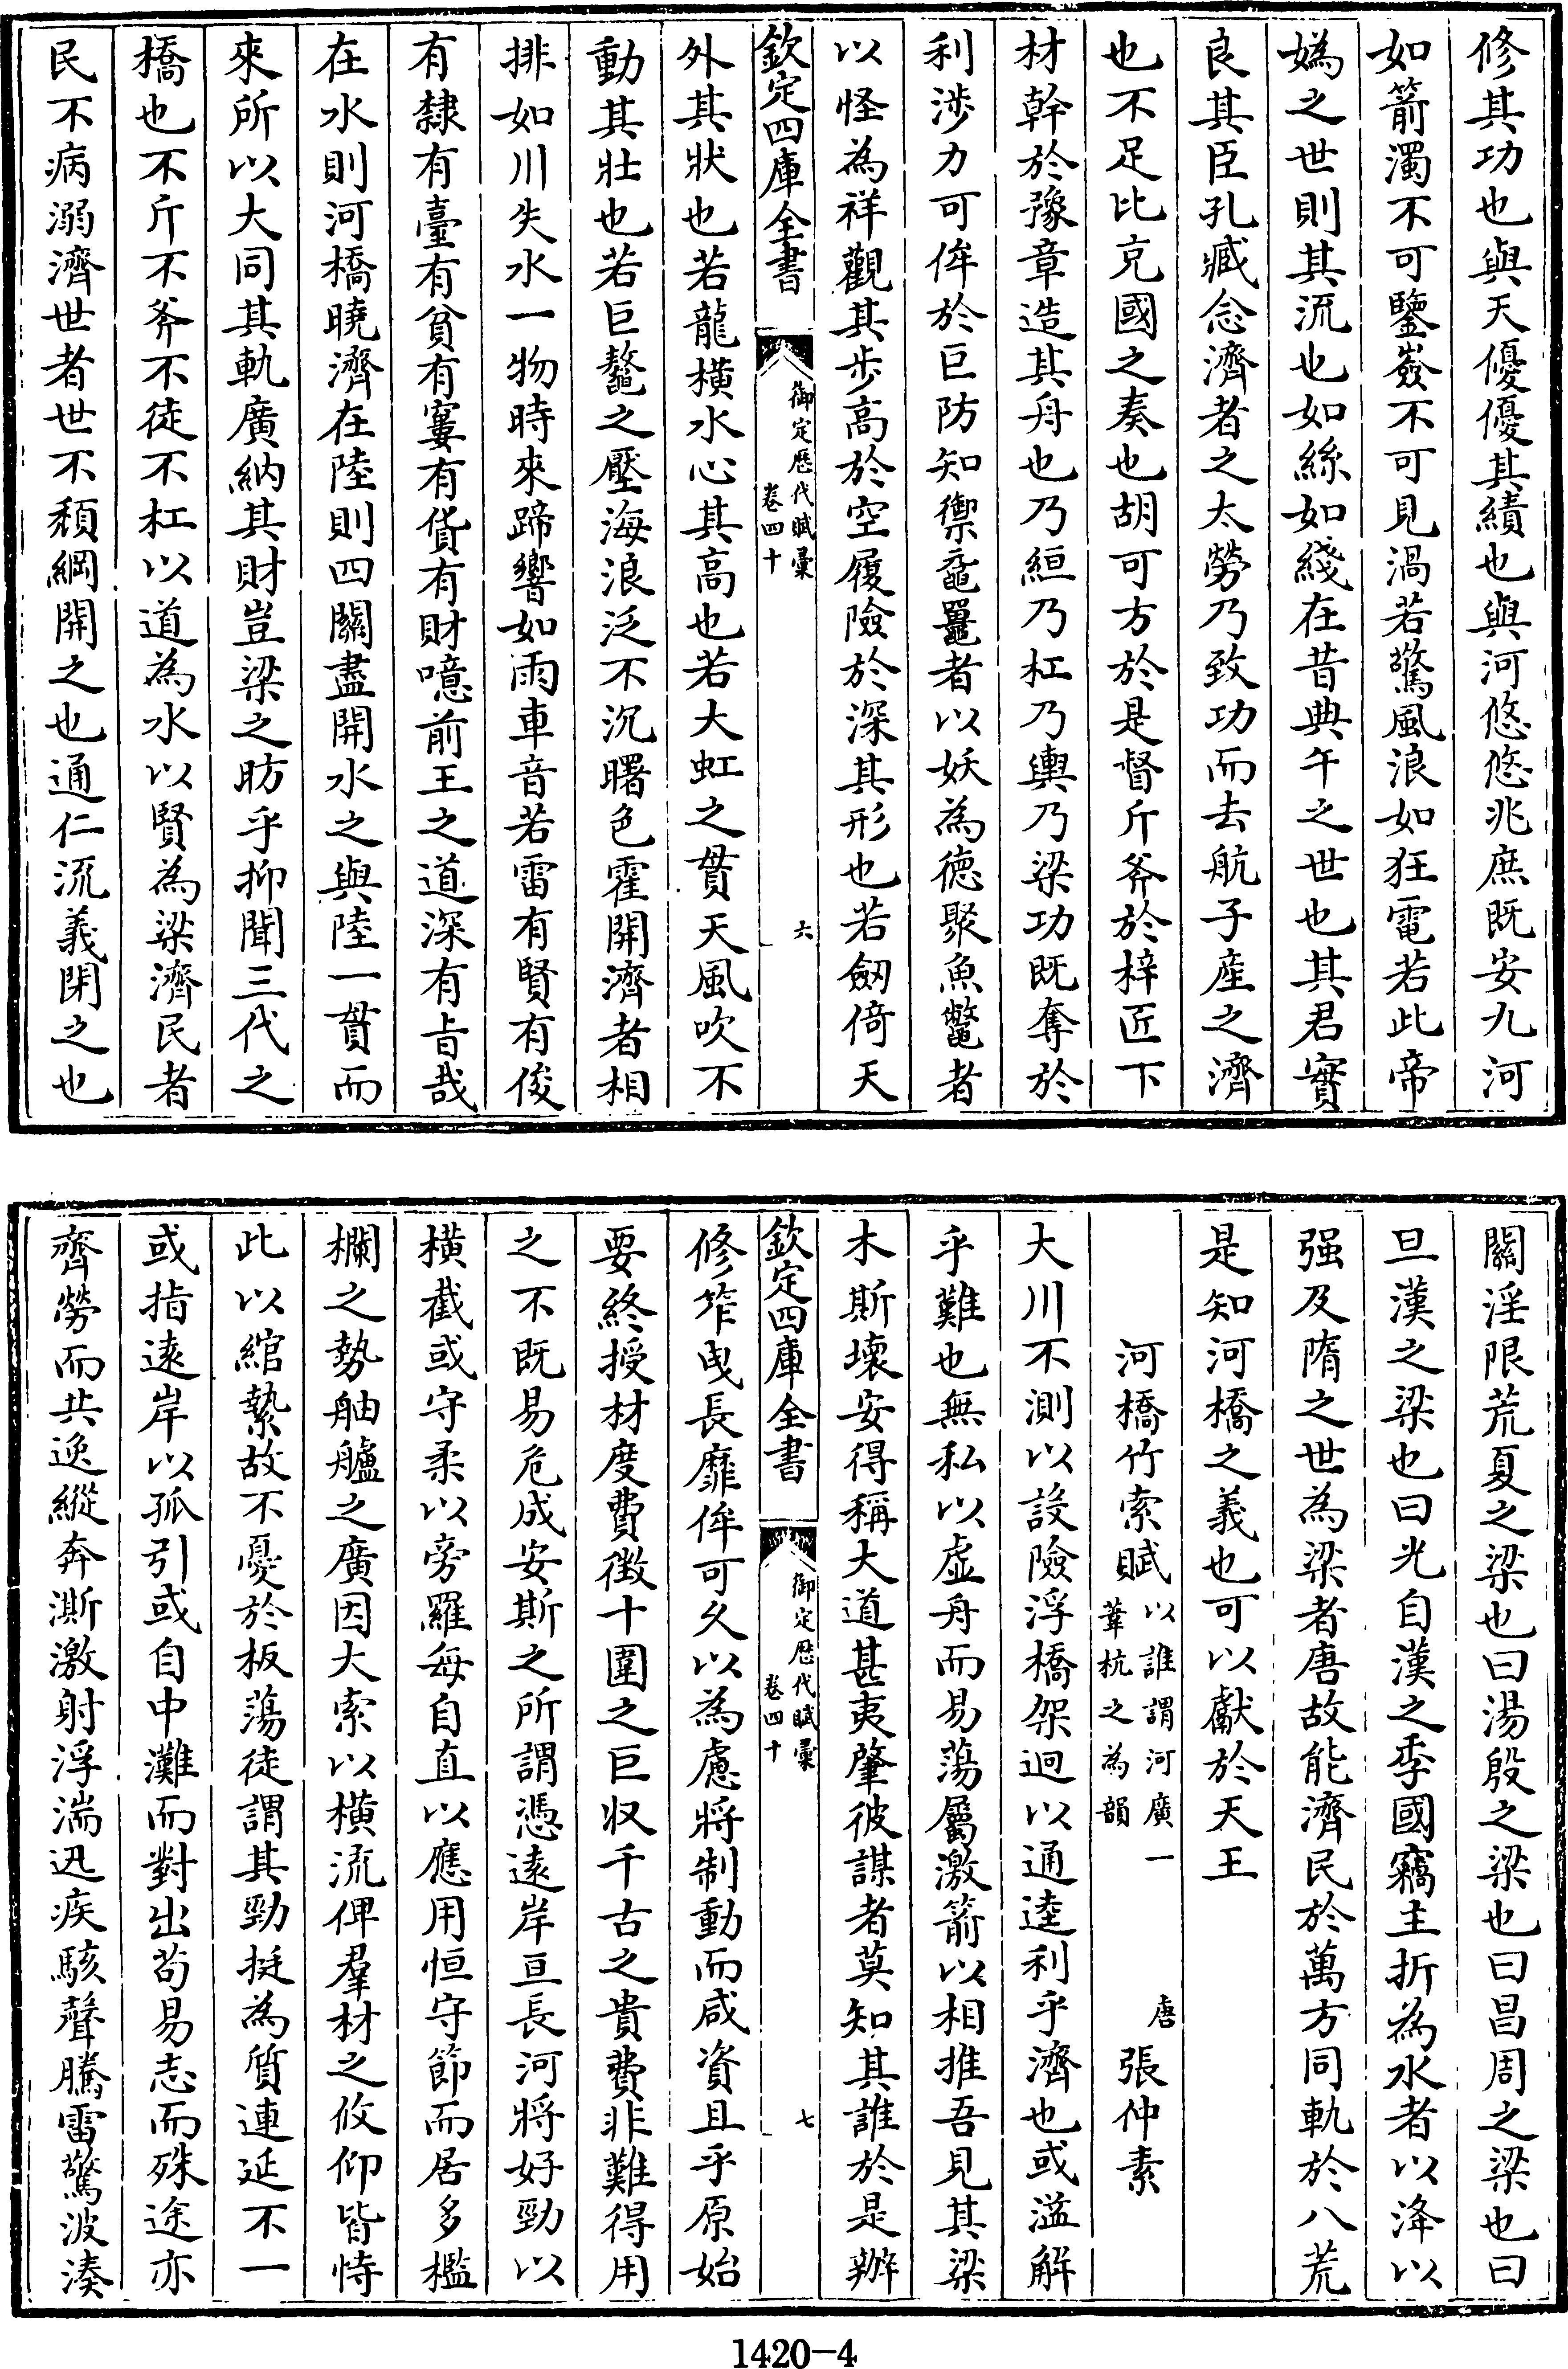 修其功也與天優優其績也與河悠悠兆庶既安九河
如箭濁不可鑒㟼不可見渦若驚風浪如狂電若此帝
媯之世則其流也如絲如綫在昔典午之世也其君實
良其臣孔臧念濟者之太勞乃致功而去航子產之濟
也不足比充國之奏也胡可方於是督斤斧於梓匠下
材幹於豫章造其舟也乃絙乃杠乃輿乃梁功既奪於
利涉力可侔於巨防知禦黿鼉者以妖為德聚魚鼈者
以怪為祥觀其步高於空履險於深其形也若劒倚天
欽定四庫全書
御定歷代賦彙
卷四十
六
外其狀也若龍橫水心其高也若大虹之貫天風吹不
動其壯也若巨鼇之壓海浪泛不沉曙色霍開濟者相
排如川失水一物時來蹄響如雨車音若雷有賢有俊
有隸有臺有貧有窶有貨有財噫前王之道深有旨哉
在水則河橋曉濟在陸則四關盡開水之與陸一貫而
來所以大同其軌廣納其財豈梁之昉乎抑聞三代之
橋也不斤不斧不徒不杠以道為水以賢為梁濟民者
民不病溺濟世者世不頽綱開之也通仁流義閉之也
關淫限荒夏之梁也曰湯殷之梁也曰昌周之梁也曰
旦漢之梁也曰光自漢之季國竊主折為水者以洚以
强及隋之世為梁者唐故能濟民於萬方同軌於八荒
是知河橋之義也可以獻於天王
河橋竹索賦 以誰謂河廣一葦杭之為韻 唐 張仲素
大川不測以設險浮橋架迥以通逵利乎濟也或濫觧
乎難也無私以虛舟而易蕩屬激箭以相推吾見其梁
木斯壞安得稱大道甚夷肇彼謀者莫知其誰於是辦
欽定四庫全書
御定歷代賦彙
卷四十
七
修笮曳長靡侔可久以為慮將制動而咸資且乎原始
要終授材度費徵十圍之巨収千古之貴費非難得用
之不既易危成安斯之所謂憑遠岸亘長河將好勁以
橫截或守柔以旁羅每自直以應用恒守節而居多檻
欄之勢舳艫之廣因大索以橫流俾羣材之攸仰皆恃
此以綰縶故不憂於板蕩徒謂其勁挺為質連延不一
或指遠岸以孤引或自中灘而對出苟易志而殊途亦
齊勞而共逸縱奔澌激射浮湍迅疾駭聲騰雷驚波湊
1420-4